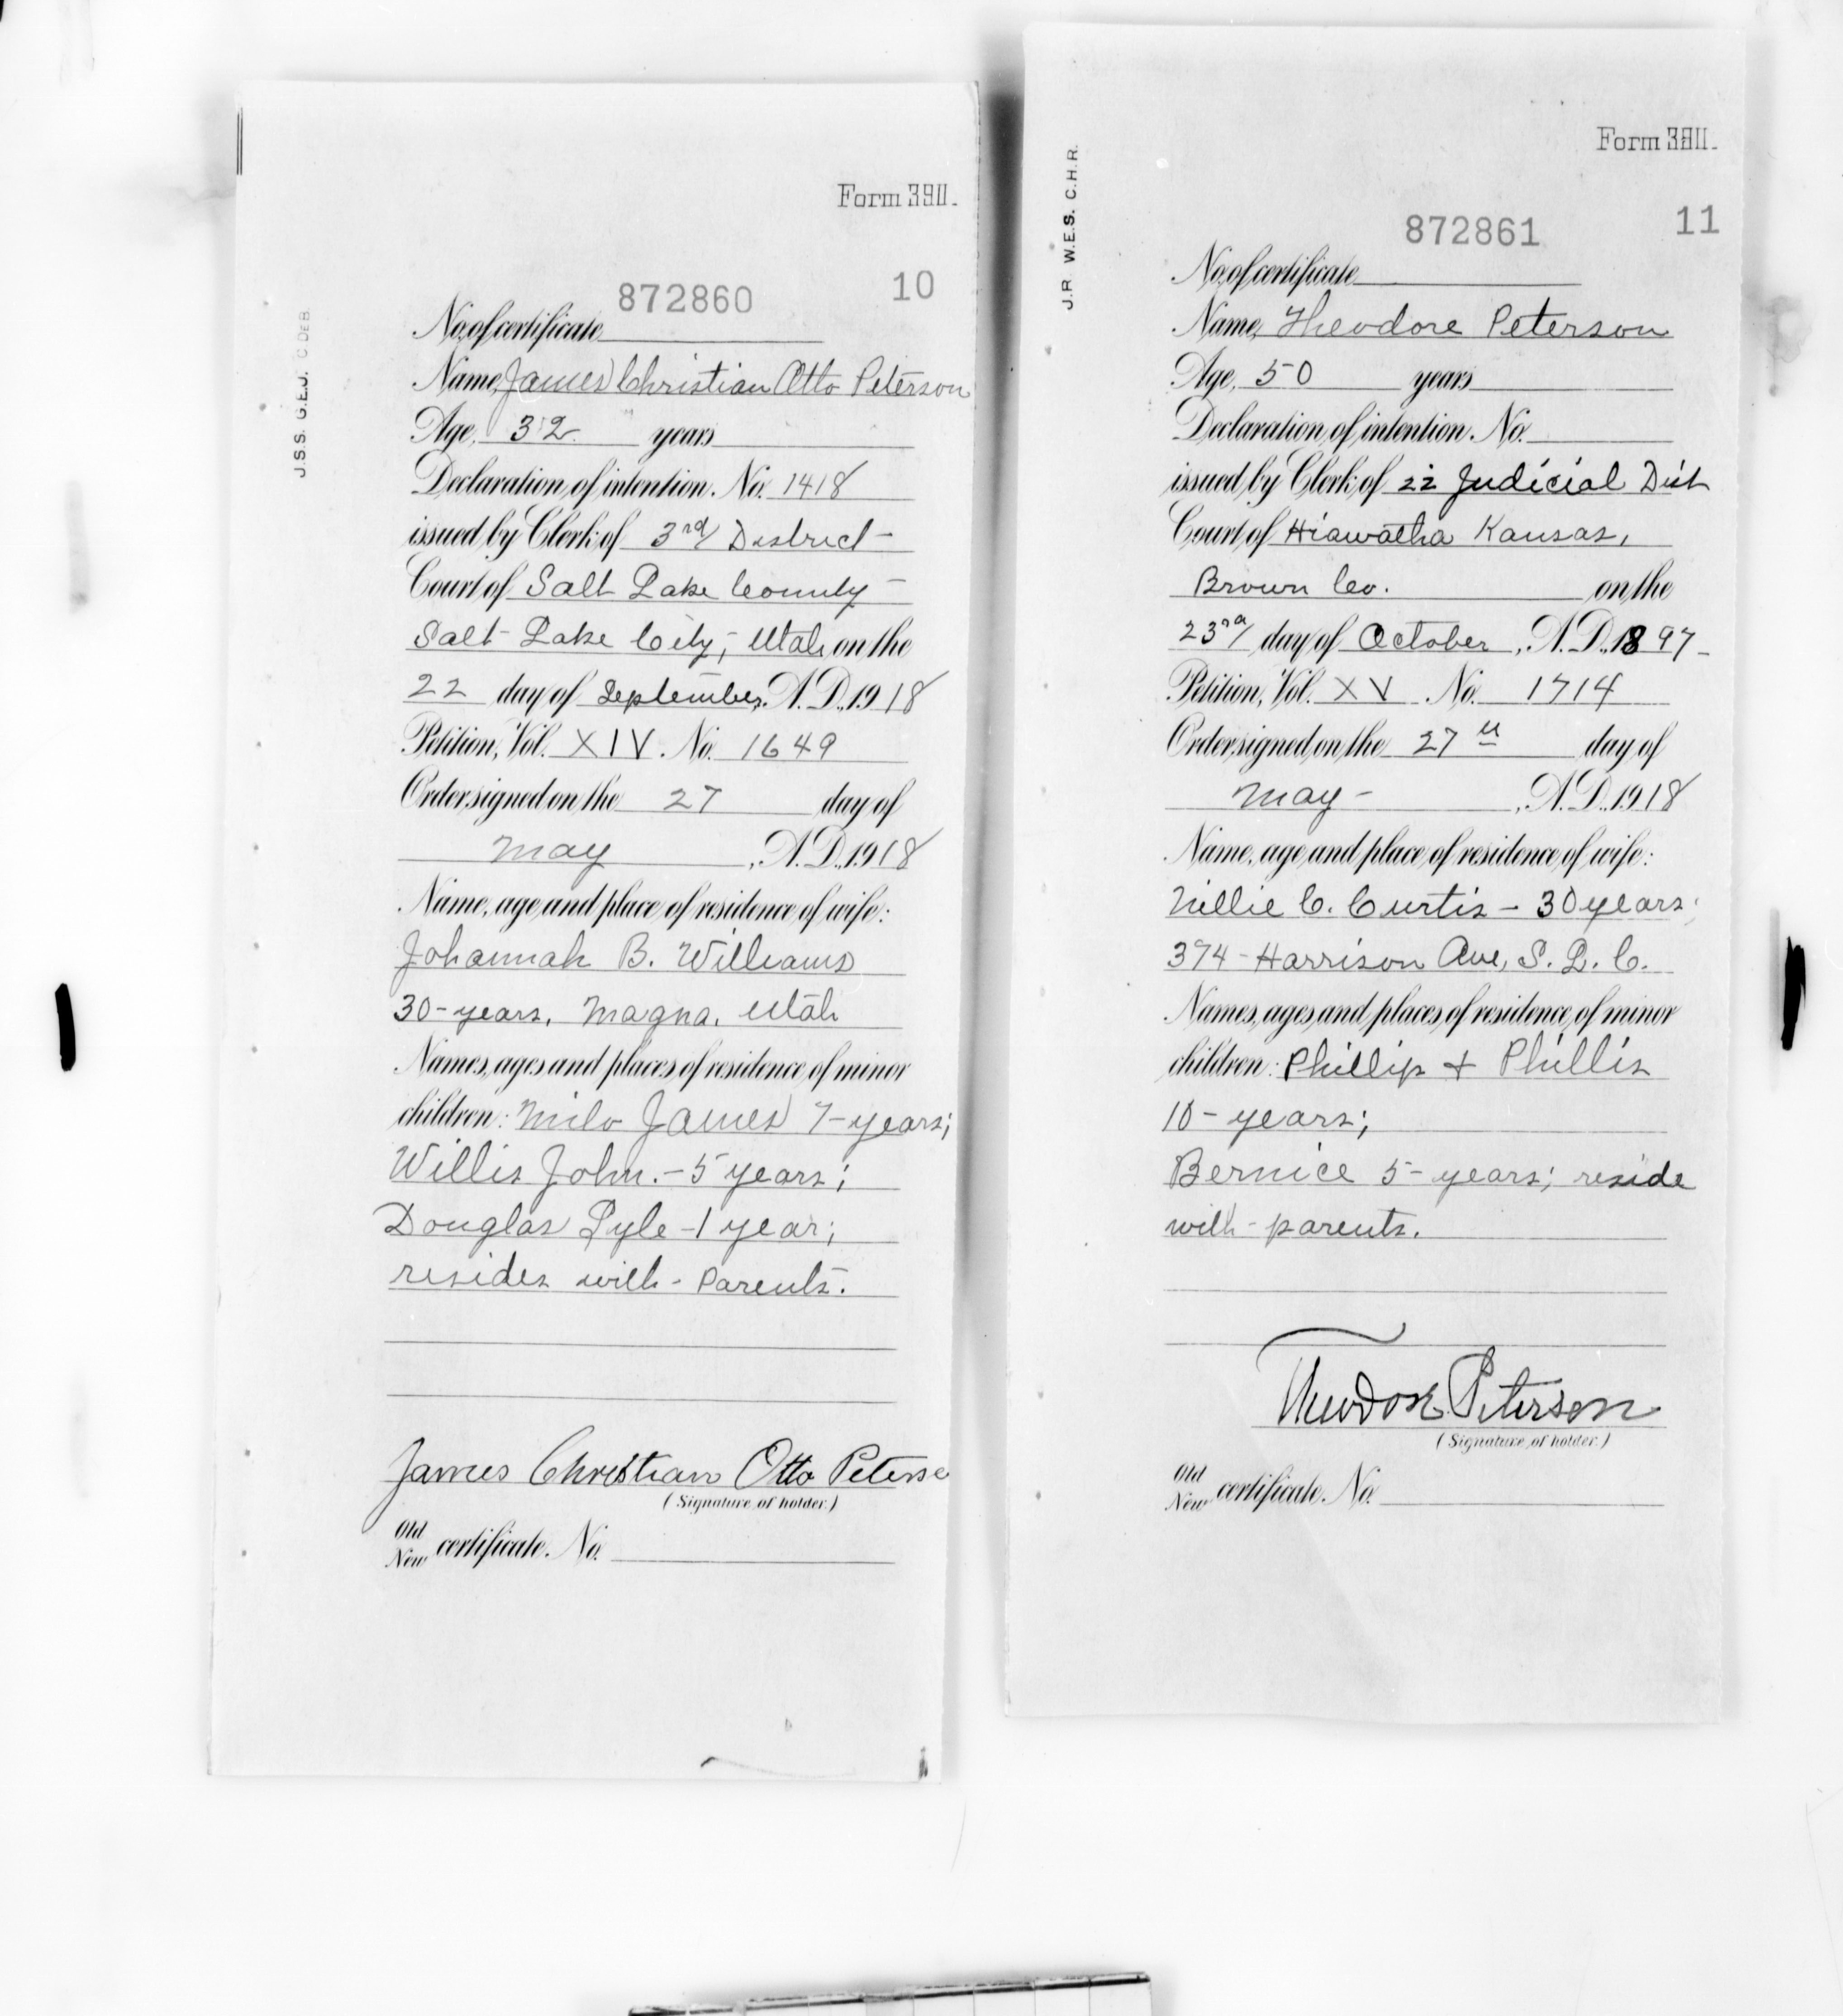 Form 390.
872860 10
J.S.S. G.E.J. C DEB.
No. of certificate
Name, James Christian Otto Peterson
Age, 32 years
Declaration of intention. No. 1418
issued by Clerk of 3rd District -
Court of Salt Lake County -
Salt Lake City, Utah on the
22 day of September, A.D. 1918
Petition, Vol. XIV. No. 1649
Order signed on the 27 day of
May, A.D. 1918
Name, age and place of residence of wife:
Johannah B. Williams
30-years, Magna, Utah
Names, ages and places of residence of minor
children: Milo James 7-years;
Willis John. - 5 years;
Douglas Lyle - 1 year;
resides with - Parents.
James Christian Otto Peterse
(Signature of holder.)
Old
New certificate. No.
Form 390.
872861 11
J.R. W.E.S. C.H.R.
No. of certificate
Name, Theodore Peterson
Age, 50 years
Declaration of intention. No.
issued by Clerk of 22 Judicial Dist
Court of Hiawatha Kansas,
Brown Co. on the
23rd day of October, A.D. 1897
Petition, Vol. XV No. 1714
Order signed on the 27th day of
May -, A.D. 1918
Name, age and place of residence of wife:
Nillie C. Curtis - 30 years;
374 - Harrison Ave, S. L. C.
Names, ages and places of residence of minor
children: Phillip + Phillis
10 - years;
Bernice 5 - years; reside
with - parents.
Theodore Peterson
(Signature of holder.)
Old
New certificate. No.